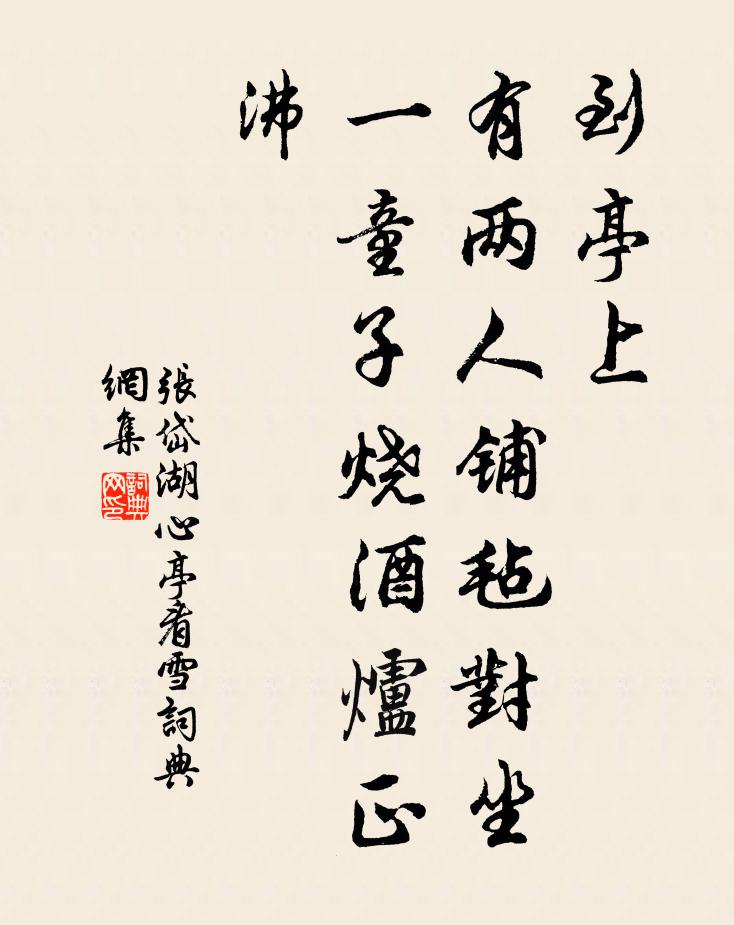 到亭上
有两人铺毡對坐
一童子烧酒爐正
沸
張岱湖心亭看雪詞典
網集
詞典
网印